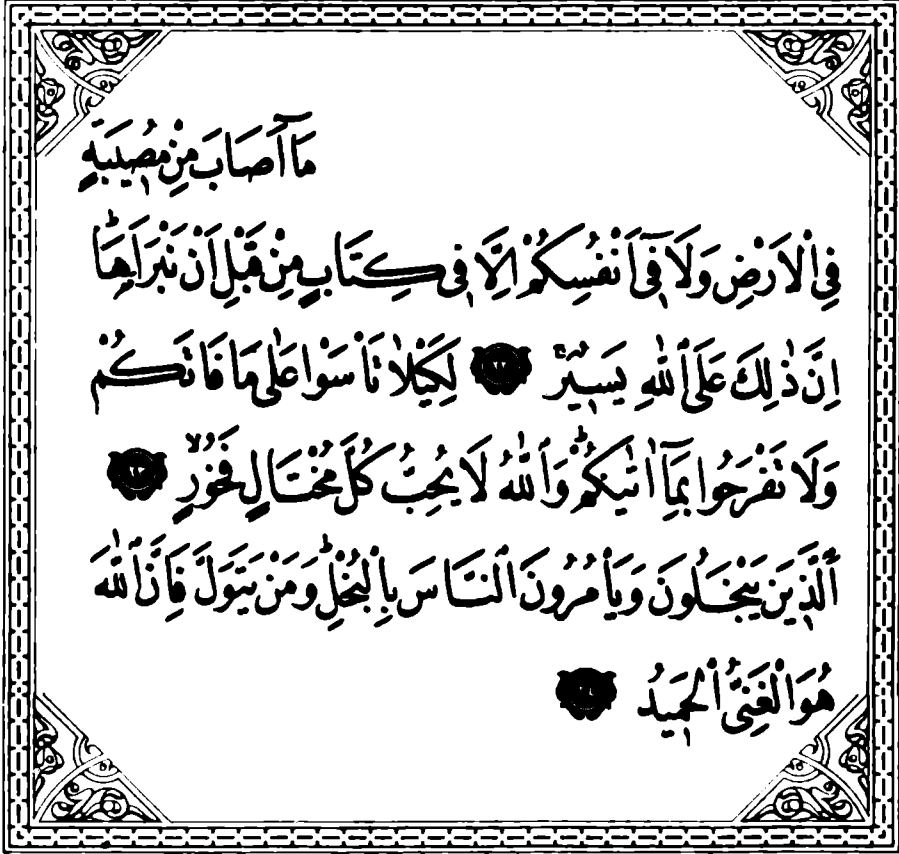 مَٓا اَصَابَ مِنْ مُصٖيبَةٍ
فِي الْاَرْضِ وَلَا فٖٓي اَنْفُسِكُمْ اِلَّا فٖي كِتَابٍ مِنْ قَبْلِ اَنْ نَبْرَاَهَاؕ
اِنَّ ذٰلِكَ عَلَى ٱللّٰهِ يَسٖيرٌۚ ﴿٢٢﴾ لِكَيْلَا تَأْسَوْا عَلٰى مَا فَاتَكُمْ
وَلَا تَفْرَحُوا بِمَٓا اٰتٰيكُمْؕ وَٱللّٰهُ لَا يُحِبُّ كُلَّ مُخْتَالٍ فَخُورٍۙ ﴿٢٣﴾
ٱلَّذٖينَ يَبْخَلُونَ وَيَأْمُرُونَ ٱلنَّاسَ بِالْبُخْلِؕ وَمَنْ يَتَوَلَّ فَاِنَّ ٱللّٰهَ
هُوَ الْغَنِيُّ ٱلْحَمٖيدُ ﴿٢٤﴾